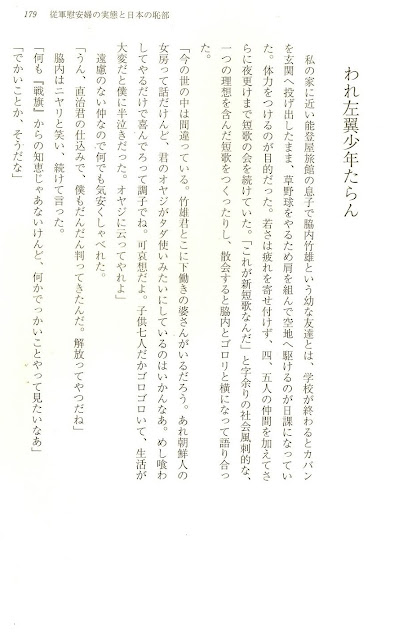 179　従軍慰安婦の実態と日本の恥部
われ左翼少年たらん
私の家に近い能登屋旅館の息子で脇内竹雄という幼な友達とは、学校が終わるとカバン
を玄関へ投げ出したまま、草野球をやるため肩を組んで空地へ駆けるのが日課になってい
た。体力をつけるのが目的だった。若さは疲れを寄せ付けず、四、五人の仲間を加えてさ
らに夜更けまで短歌の会を続けていた。「これが新短歌なんだ」と字余りの社会風刺的な、
一つの理想を含んだ短歌をつくったりし、散会すると脇内とゴロリと横になって語り合っ
た。
「今の世の中は間違っている。竹雄君とこに下働きの婆さんがいるだろう。あれ朝鮮人の
女房って話だけんど、君のオヤジがタダ使いみたいにしているのはいかんなあ。めし喰わ
してやるだけで喜んでろって調子でね。可哀想だよ。子供七人だかゴロゴロいて、生活が
大変だと僕に半泣きだった。オヤジに云ってやれよ」
遠慮のない仲なので何でも気安くしゃべれた。
「うん、直治君の仕込みで、僕もだんだん判ってきたんだ。解放ってやつだね」
脇内はニヤリと笑い、続けて言った。
「何も『戦旗』からの知恵じゃあないけんど、何かでっかいことやって見たいなあ」
「でかいことか、そうだな」